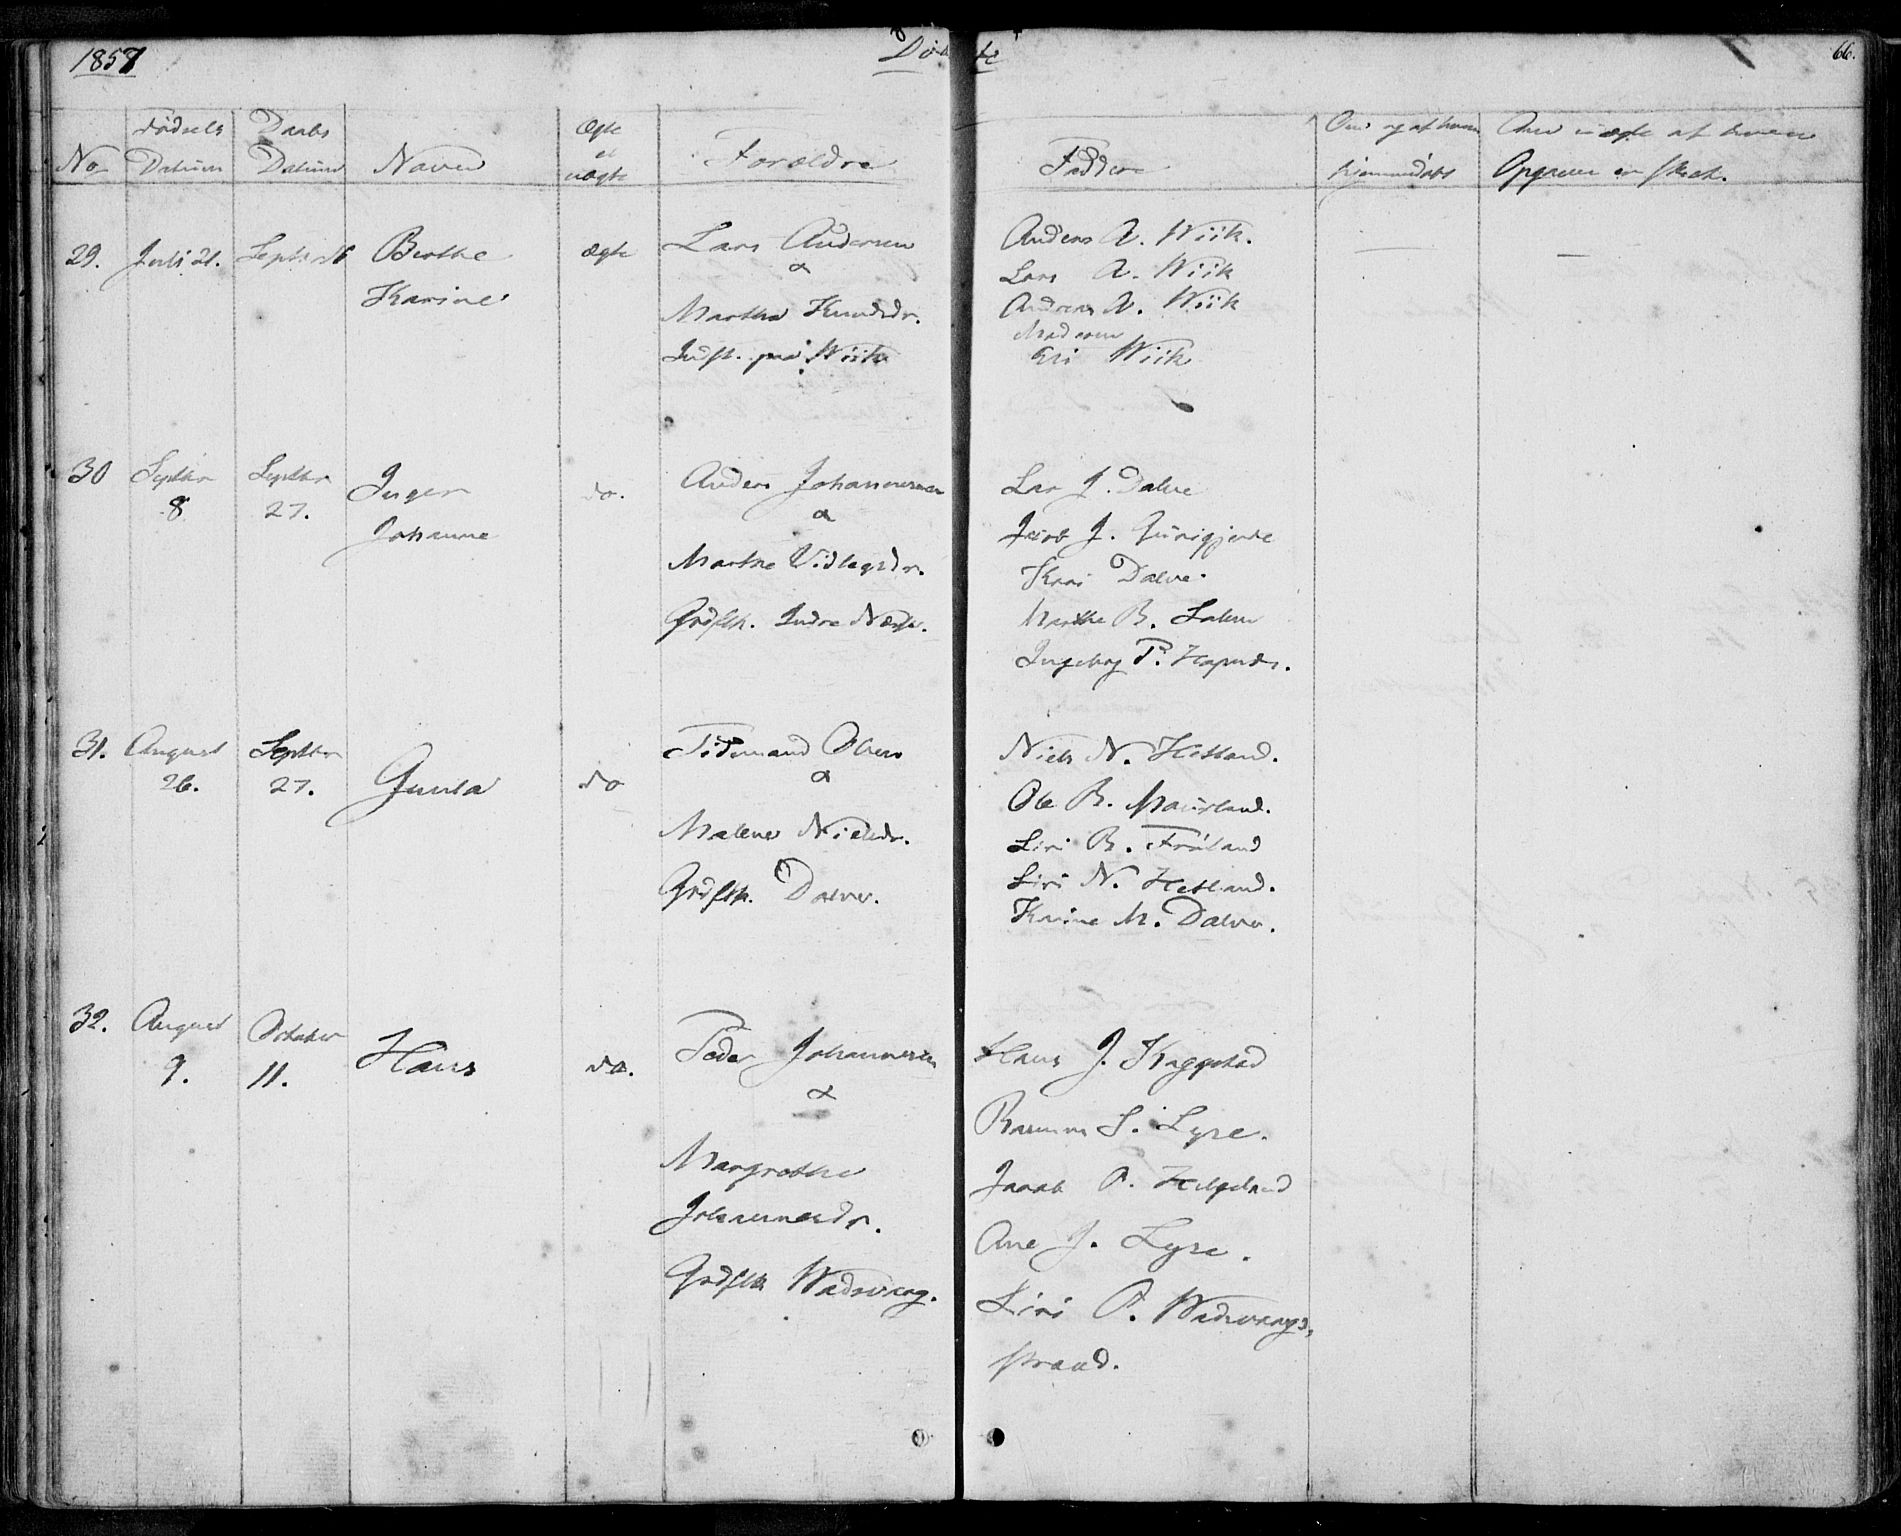 1857
Døbte
66.
No
Fødsels Datum
Daabs Datum
Navn
Ægte el uægte
Forældre
Faddere
Om og af hvem hjemmedøbt
Anm
29. Juli 21. Septr 26 Berthe Karine ægte
Lars Andersen
&
Martha Knudsdr.
Indst. paa Wiik
Anders A. Wiik.
Lars A. Wiik
Andreas A. Wiik
Madame
Eli Wiik
—
—
30 Septbr 8. Septbr 27. Inger Johanne do.
Anders Johannesen
&
Marthe Vidlegsdr.
Grdflk. Indre Næsse.
Lar J. Dalve
Jacob J.
Kari Dalve.
Marthe B.
Ingeborg P.
31. August 26. Septbr 27. Gunla do
Tidemand Olsen
&
Malene Nielsdr.
Grdflk. Dalve.
Niels N. Hetland.
Ole B. Mausland.
Siri B. Fröland
Siri N. Hetland.
Karine M. Dalve.
32. August 9. October 11. Hans do.
Peder Johannesen
&
Margrethe
Johannesdr.
Grdflk Wadsvaag.
Hans J. Kaggestad
Rasmus S. Lyse.
Jacob P. Helgeland
Ane J. Lyse.
Siri P. Wadsvaags,
strand.